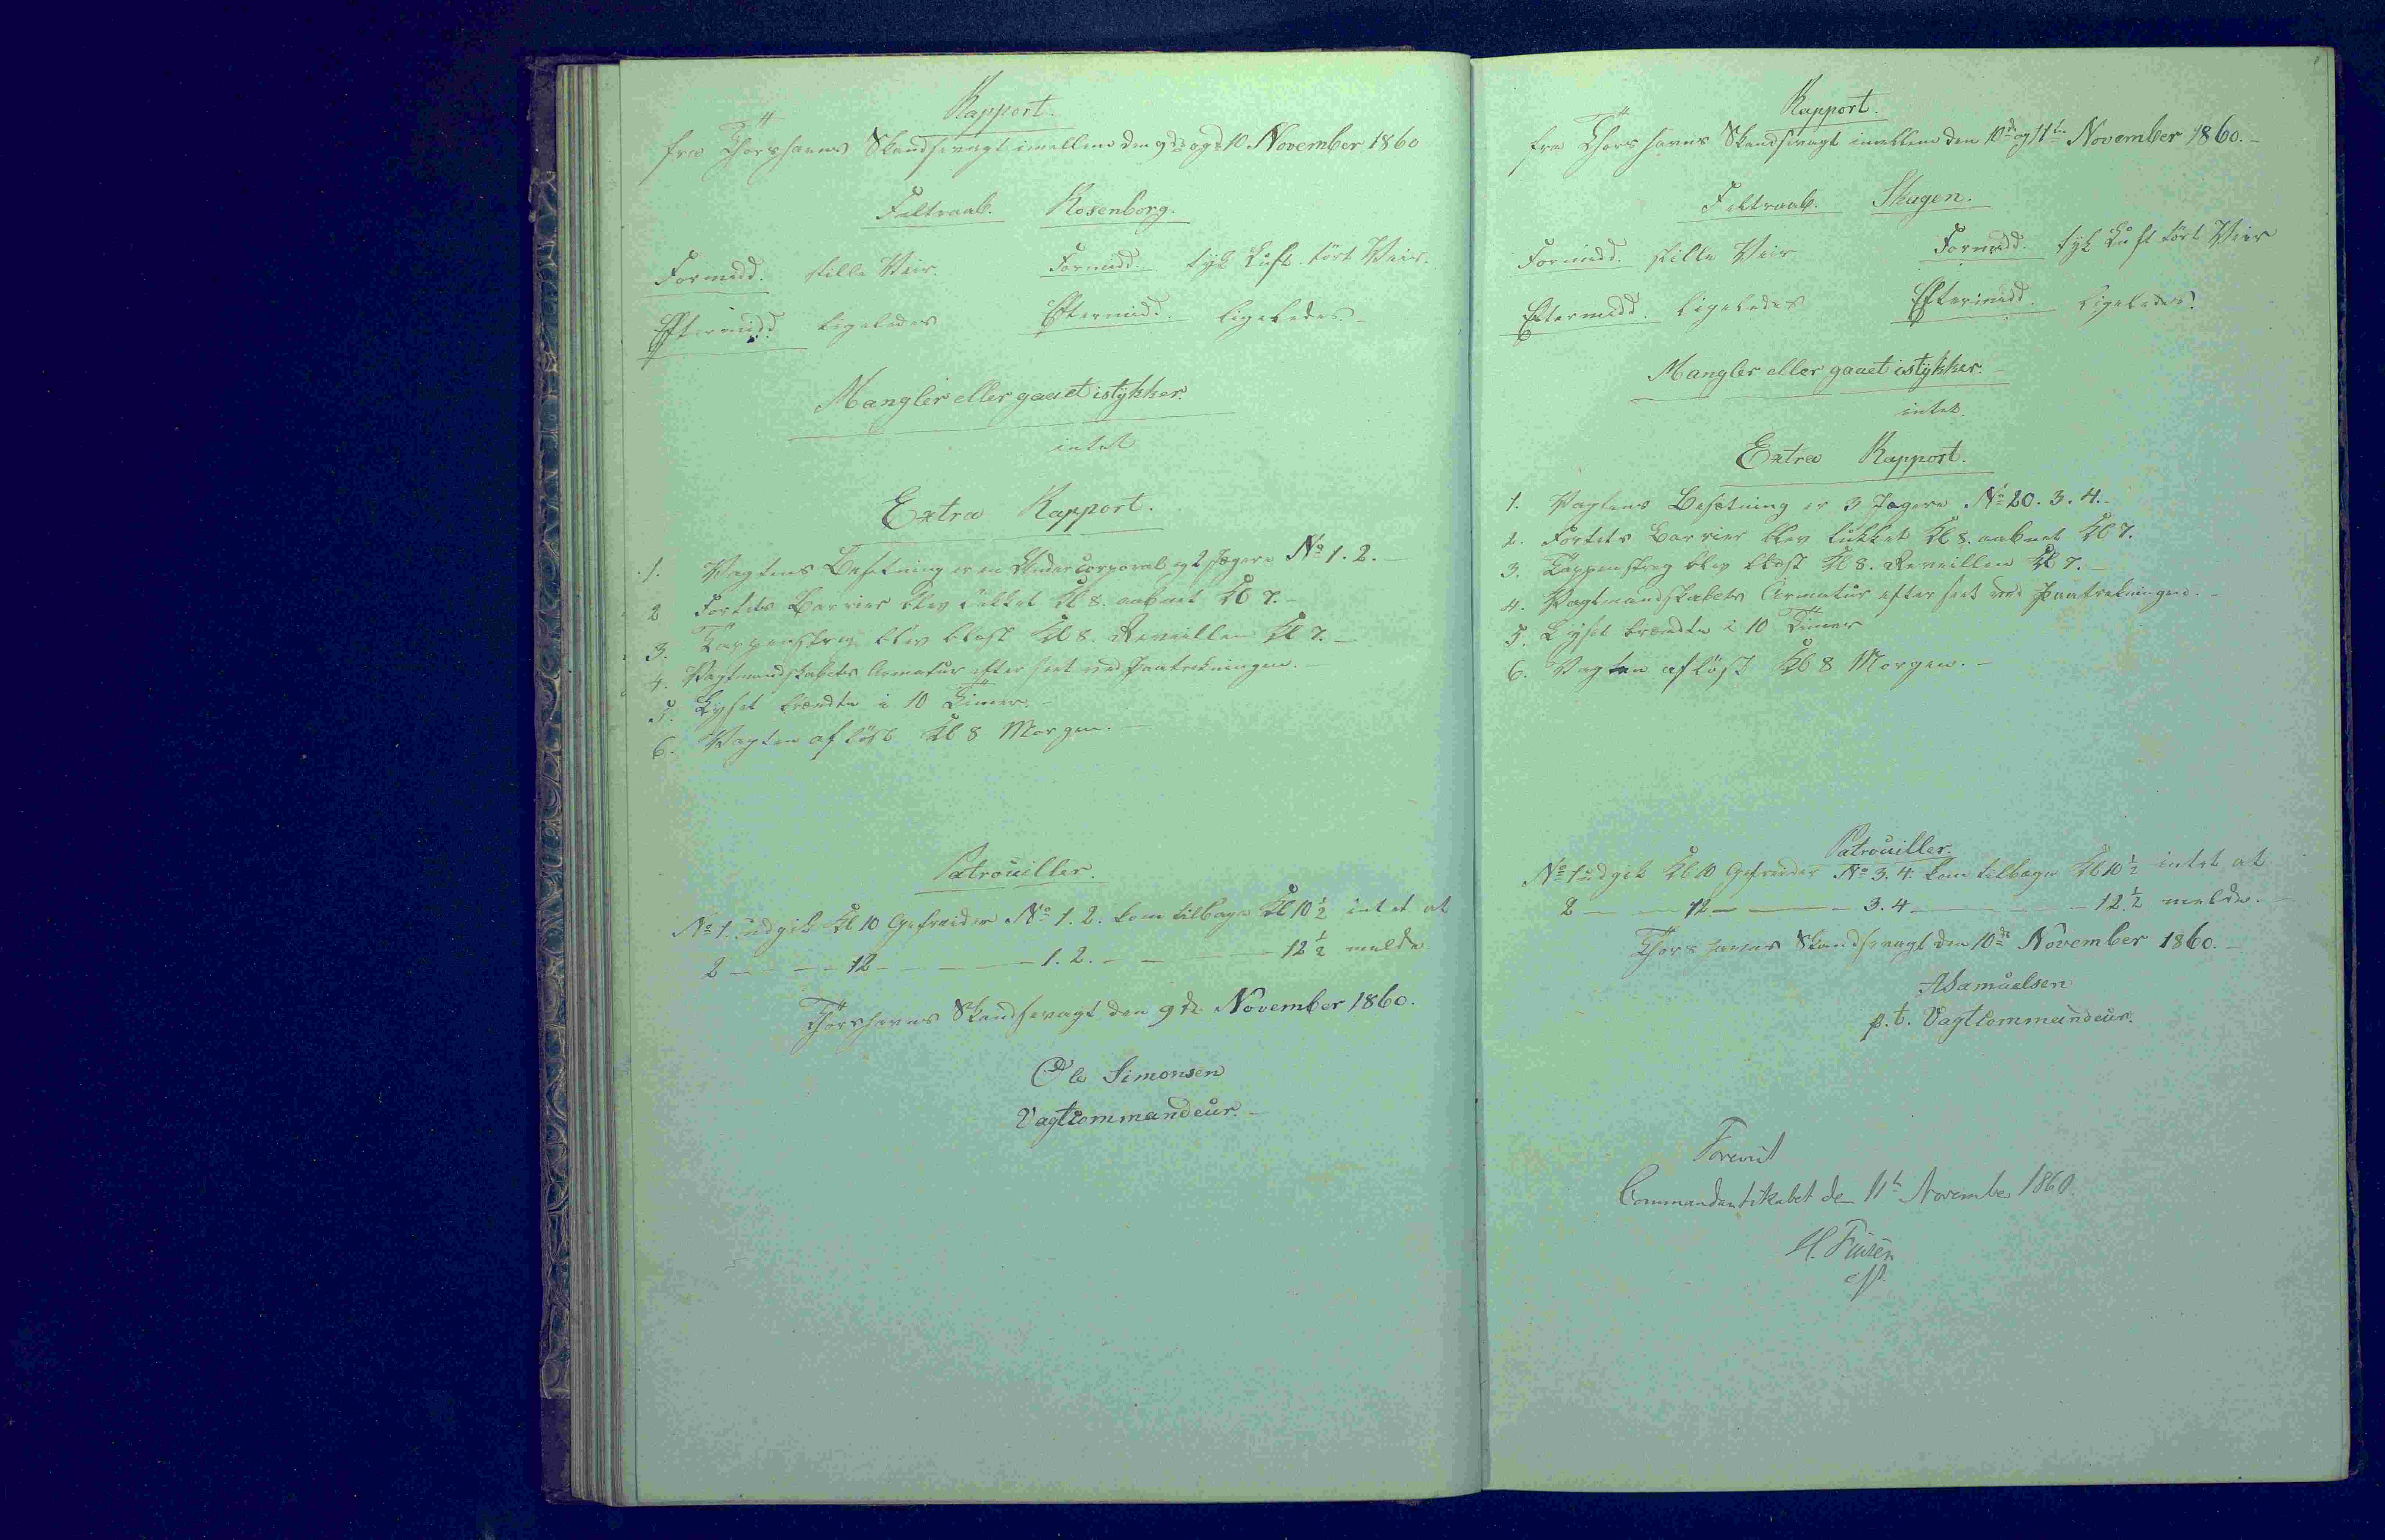 Rapport.
fra Thorshavns Skandsevagt imellem den 9de og 10 November 1860
Feltraab. Rosenborg.
Formidd. stille Veir. Formidd. tyk Luft tört Veir.
Eftermidd. ligeledes Eftermidd. ligeledes.
Mangler eller gaaet istykker.
intet
Extra Rapport.
1. Vagtens Besetning er en Undercorporal og 2 Jægere No 1. 2.
2 Fortets Barrier blev lukket Kl 8. aabnet Kl 7.
3. Tappenstreg blev blæst Kl 8. Reveillen Kl 7.
4. Vagtmandskabets Armatur efterseet ved Paatrekningen.
5. Lyset brændte i 10 Timer.
6. Vagten aflöst Kl 8 Morgen.
Patrouiller.
No 1. udgik Kl 10 Gefreider No 1. 2. kom tilbage Kl 10 1/2 intet at
2 — — 12 — — 1. 2. — — 12 1/2 melde.
Thorshavns Skandsevagt den 9de November 1860.
Ole Simonsen
Vagtcommandeur.
Rapport.
fra Thorshavns Skandsevagt imellem den 10de og 11te November 1860.
Feltraab. Skagen.
Formidd. stille Veir Formidd. tyk Luft tört Veir
Eftermidd. ligeledes Eftermidd. ligeledes.
Mangler eller gaaet istykker.
intet.
Extra Rapport.
1. Vagtens Besætning er 3 Jægere No 20. 3. 4.
2. Fortets Barrier blev lukket Kl 8. aabnet Kl 7.
3. Tappenstreg blev blæst Kl 8. Reveillen Kl 7.
4. Vagtmandskabets Armatur efterseet ved Paatrekningen.
5. Lyset brændte i 10 Timer
6. Vagten aflöst Kl 8 Morgen.
Patrouiller.
No 1 udgik Kl 10 Gefreider No 3. 4. kom tilbage Kl 10 1/2 intet at
2 — — 12 — — 3. 4 — — 12 1/2 melde.
Thorshavns Skandsevagt den 10de November 1860.
A Samuelsen
p. t. Vagtcommandeur.
Forevist
Commandantskabet den 11te November 1860.
H. Finsen